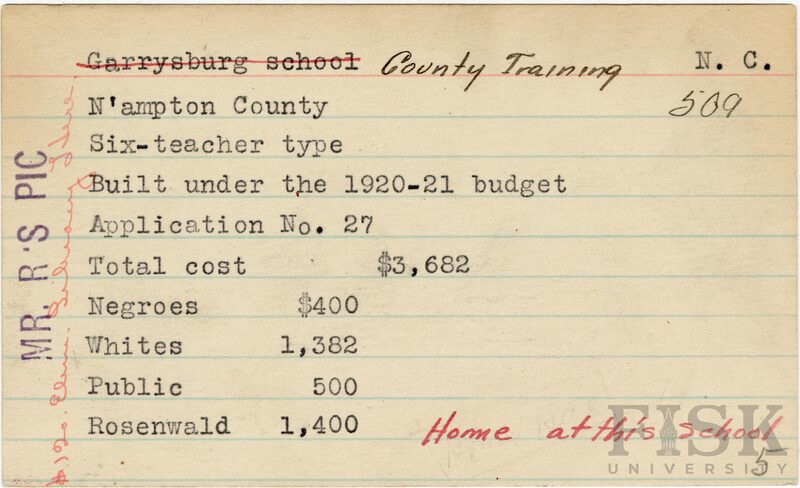 Garrysburg school County Training N. C.
N'ampton County 509
Six-teacher type
Built under the 1920-21 budget
Application No. 27
Total cost $3,682
Negroes $400
Whites 1,382
Public 500
Rosenwald 1,400
Home at this School
5
MR. R'S PIC
$120. Elem. Library here
FISK
UNIVERSITY